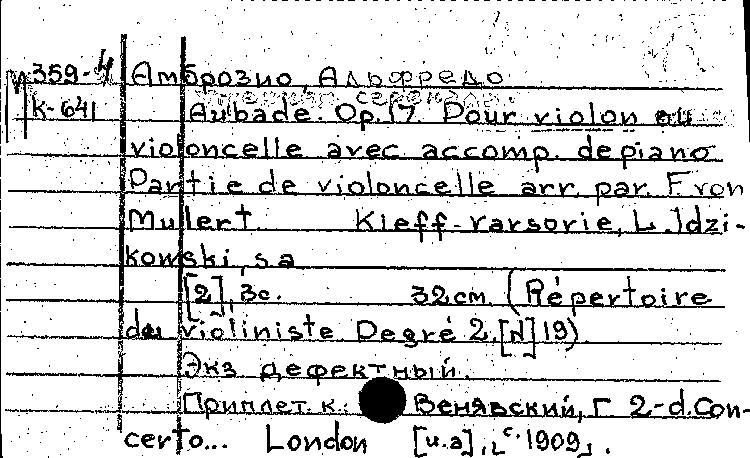 М359-4 Амброзио, Альфредо
К-641 Aubade. Op. 17. Pour violon ou
violoncelle avec accomp. de piano
Partie de violoncelle arr. par. F. von
Mulert. Kieff-Varsovie, L. Idzi-
kowski, s.a
[2], 3c. 32 см. (Répertoire
du violiniste Degré 2, [N] 19).
Экз. дефектный.
Приплет. к: Венявский, Г. 2-d. Con-
certo... London [u.a], [c. 1909].